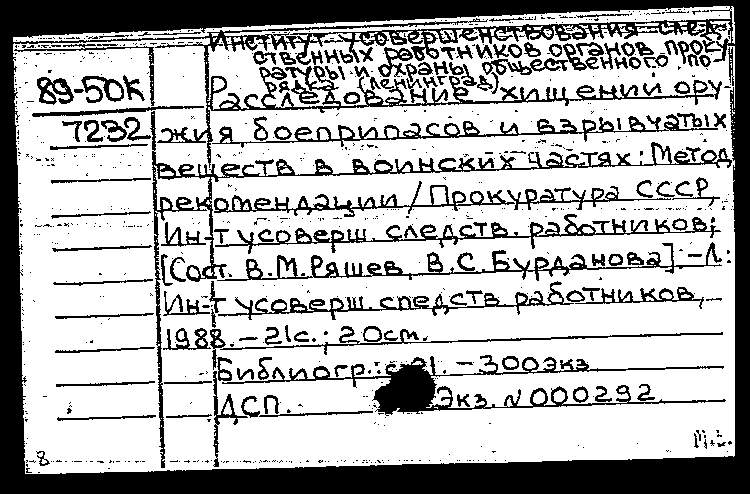 Институт усовершенствования след-
ственных работников органов проку-
ратуры и охраны общественного по-
рядка (Ленинград)
89-50к Расследование хищений ору-
7232 жия, боеприпасов и взрывчатых
веществ в воинских частях: Метод.
рекомендации / Прокуратура СССР,
Ин-т усоверш. следств. работников;
[Сост. В.М.Ряшев, В.С.Бурданова]. -Л.:
Ин-т усоверш. следств. работников,
1988. - 21с.; 20см.
Библиогр.: с.21. - 300экз
ДСП. Экз. N000292.
8